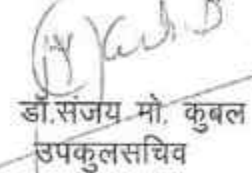 डॉ.संजय मो. कुबल
उपकुलसचिव